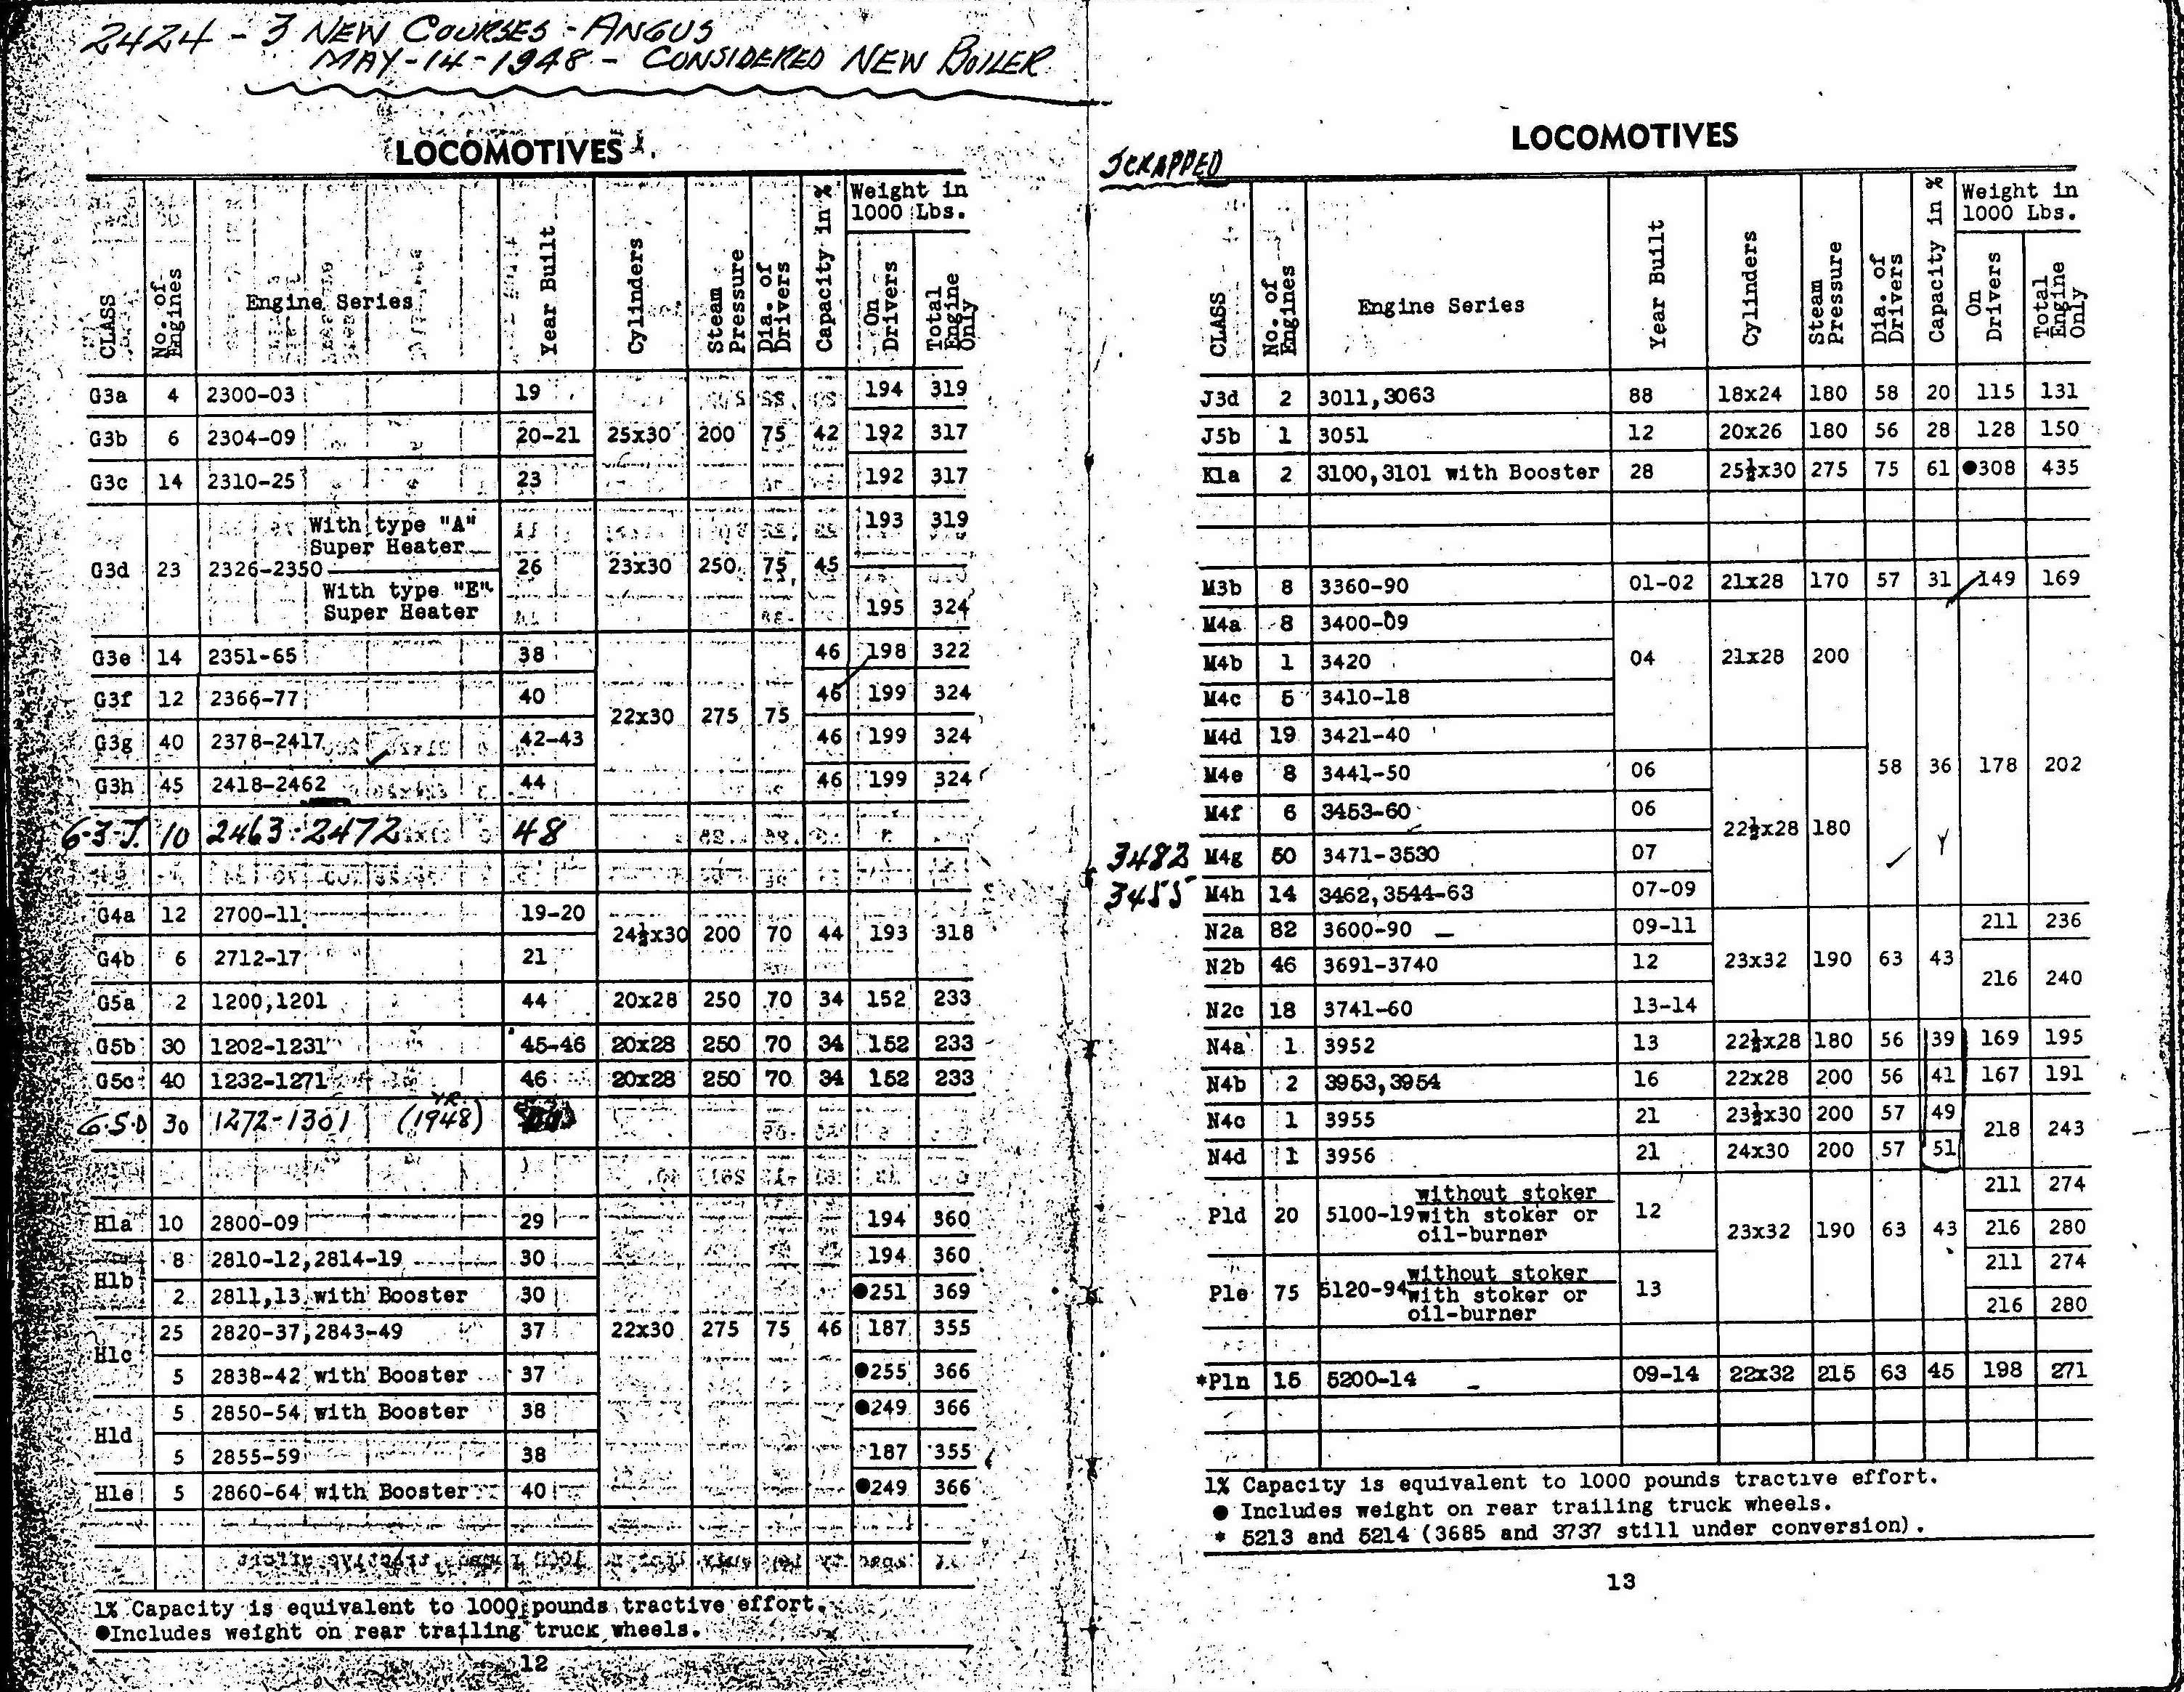 2424 - 3 NEW COURSES - ANGUS
MAY-14-1948 - CONSIDERED NEW BOILER
LOCOMOTIVES
CLASS No. of Engines Engine Series Year Built Cylinders Steam Pressure Dia. of Drivers Capacity in % Weight in 1000 Lbs. On Drivers Total Engine Only
G3a 4 2300-03 19 194 319
G3b 6 2304-09 20-21 25x30 200 75 42 192 317
G3c 14 2310-25 23 192 317
With type "A" 193 319
Super Heater
G3d 23 2326-2350 26 23x30 250 75 45
With type "E"
Super Heater 195 324
G3e 14 2351-65 38 46 198 322
G3f 12 2366-77 40 46 199 324
22x30 275 75
G3g 40 2378-2417 42-43 46 199 324
G3h 45 2418-2462 44 46 199 324
G-3-J. 10 2463-2472 48
G4a 12 2700-11 19-20
24½x30 200 70 44 193 318
G4b 6 2712-17 21
G5a 2 1200,1201 44 20x28 250 70 34 152 233
G5b 30 1202-1231 45-46 20x28 250 70 34 152 233
G5c 40 1232-1271 46 20x28 250 70 34 152 233
G.5.D 30 1272-1301 YR. (1948)
H1a 10 2800-09 29 194 360
H1b 8 2810-12,2814-19 30 194 360
2 2811,13 with Booster 30 ●251 369
H1c 25 2820-37,2843-49 37 22x30 275 75 46 187 355
5 2838-42 with Booster 37 ●255 366
H1d 5 2850-54 with Booster 38 ●249 366
5 2855-59 38 187 355
H1e 5 2860-64 with Booster 40 ●249 366
1% Capacity is equivalent to 1000 pounds tractive effort.
●Includes weight on rear trailing truck wheels.
12
LOCOMOTIVES
SCRAPPED
CLASS No. of Engines Engine Series Year Built Cylinders Steam Pressure Dia. of Drivers Capacity in % Weight in 1000 Lbs. On Drivers Total Engine Only
J3d 2 3011,3063 88 18x24 180 58 20 115 131
J5b 1 3051 12 20x26 180 56 28 128 150
K1a 2 3100,3101 with Booster 28 25½x30 275 75 61 ●308 435
M3b 8 3360-90 01-02 21x28 170 57 31 149 169
M4a 8 3400-09
M4b 1 3420 04 21x28 200
M4c 5 3410-18
M4d 19 3421-40
M4e 8 3441-50 06 58 36 178 202
M4f 6 3453-60 06
22½x28 180
3482 M4g 50 3471-3530 07
3455 M4h 14 3462,3544-63 07-09
N2a 82 3600-90 09-11 211 236
N2b 46 3691-3740 12 23x32 190 63 43
216 240
N2c 18 3741-60 13-14
N4a 1 3952 13 22½x28 180 56 39 169 195
N4b 2 3953,3954 16 22x28 200 56 41 167 191
N4c 1 3955 21 23½x30 200 57 49
218 243
N4d 1 3956 21 24x30 200 57 51
without stoker 211 274
P1d 20 5100-19 with stoker or 12
oil-burner 23x32 190 63 43 216 280
without stoker 211 274
P1e 75 5120-94 with stoker or 13
oil-burner 216 280
*P1n 15 5200-14 09-14 22x32 215 63 45 198 271
1% Capacity is equivalent to 1000 pounds tractive effort.
● Includes weight on rear trailing truck wheels.
* 5213 and 5214 (3685 and 3737 still under conversion).
13